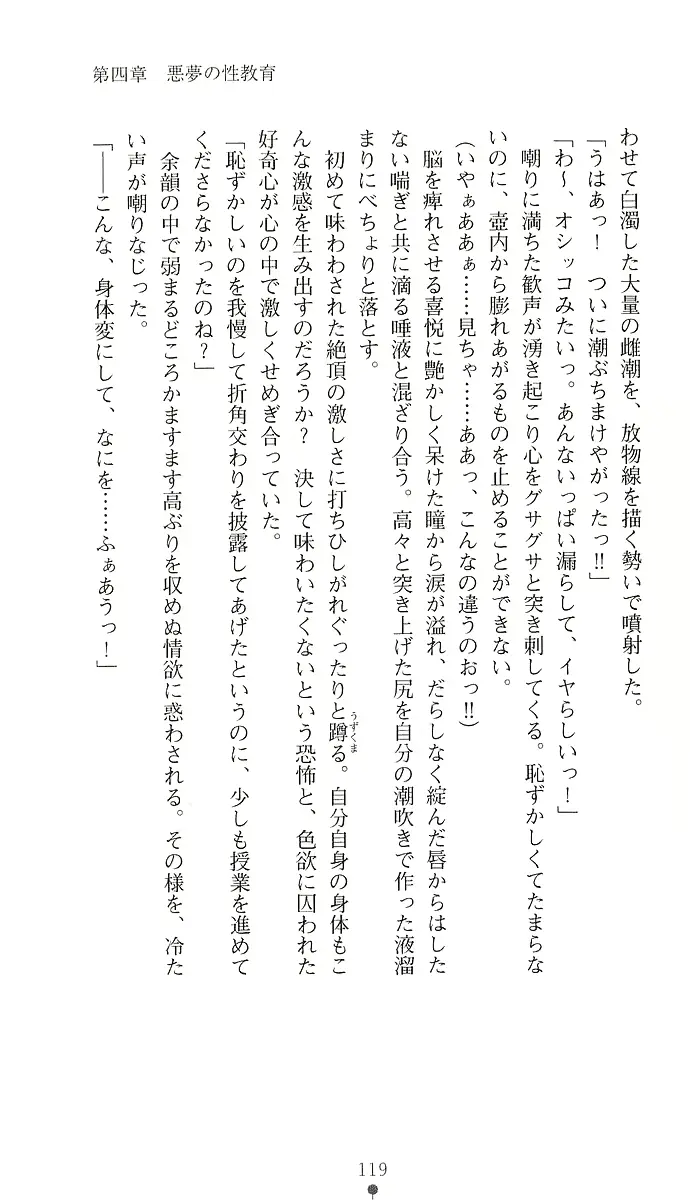 第四章　悪夢の性教育
わせて白濁した大量の雌潮を、放物線を描く勢いで噴射した。
「うはあっ！　ついに潮ぶちまけやがったっ!!」
「わ〜、オシッコみたいっ。あんないっぱい漏らして、イヤらしいっ！」
　嘲りに満ちた歓声が湧き起こり心をグサグサと突き刺してくる。恥ずかしくてたまらな
いのに、壺内から膨れあがるものを止めることができない。
（いやぁああぁ……見ちゃ……ああっ、こんなの違うのおっ!!）
　脳を痺れさせる喜悦に艶かしく呆けた瞳から涙が溢れ、だらしなく綻んだ唇からはした
ない喘ぎと共に滴る唾液と混ざり合う。高々と突き上げた尻を自分の潮吹きで作った液溜
まりにべちょりと落とす。
　初めて味わわされた絶頂の激しさに打ちひしがれぐったりと蹲る。自分自身の身体もこ
んな激感を生み出すのだろうか？　決して味わいたくないという恐怖と、色欲に囚われた
好奇心が心の中で激しくせめぎ合っていた。
「恥ずかしいのを我慢して折角交わりを披露してあげたというのに、少しも授業を進めて
くださらなかったのね？」
　余韻の中で弱まるどころかますます高ぶりを収めぬ情欲に惑わされる。その様を、冷た
い声が嘲りなじった。
「――こんな、身体変にして、なにを……ふぁあうっ！」
119